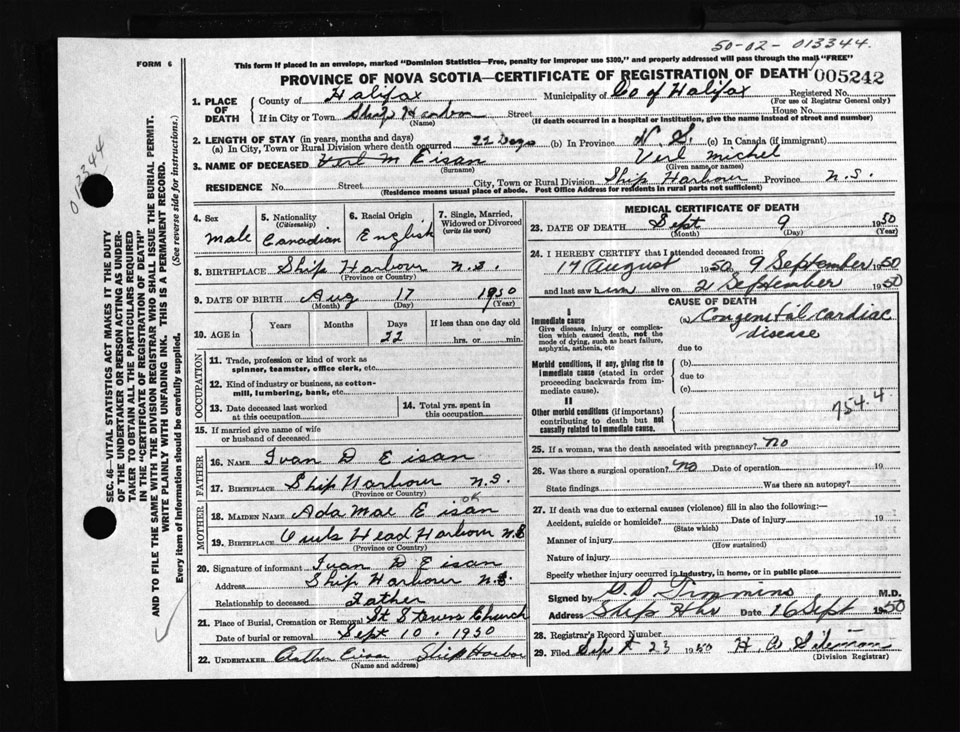 50-02-013344.
FORM 6
This form if placed in an envelope, marked "Dominion Statistics—Free, penalty for improper use $300," and properly addressed will pass through the mail "FREE"
PROVINCE OF NOVA SCOTIA—CERTIFICATE OF REGISTRATION OF DEATH
005242
1. PLACE OF DEATH
County of Halifax
Municipality of Co of Halifax Registered No.
(For use of Registrar General only)
If in City or Town Ship Harbour Street House No.
(Name) (If death occurred in a hospital or institution, give the name instead of street and number)
2. LENGTH OF STAY (in years, months and days)
(a) In City, Town or Rural Division where death occurred 22 Days (b) In Province N.S. (c) In Canada (if immigrant)
3. NAME OF DECEASED Verl M Eisan Verl Michel
(Surname) (Given name or names)
RESIDENCE No. Street City, Town or Rural Division Ship Harbour Province N.S.
(Residence means usual place of abode. Post Office Address for Residents in rural parts not sufficient)
4. Sex Male
5. Nationality (Citizenship) Canadian
6. Racial Origin English
7. Single, Married, Widowed or Divorced (write the word)
8. BIRTHPLACE Ship Harbour N.S.
(Province or Country)
9. DATE OF BIRTH Aug 17 1950
(Month) (Day) (Year)
10. AGE in
Years Months Days If less than one day old
22 hrs. or min.
OCCUPATION
11. Trade, profession or kind of work as spinner, teamster, office clerk, etc.
12. Kind of industry or business, as cotton-mill, lumbering, bank, etc.
13. Date deceased last worked at this occupation
14. Total yrs. spent in this occupation
15. If married give name of wife or husband of deceased
FATHER
16. NAME Ivan D Eisan
17. BIRTHPLACE Ship Harbour N.S.
(Province or Country)
MOTHER
18. MAIDEN NAME Ada Mae Eisan
OK
19. BIRTHPLACE Owls Head Harbour N.S
(Province or Country)
20. Signature of informant Ivan D Eisan
Address Ship Harbour N.S.
Relationship to deceased Father
21. Place of Burial, Cremation or Removal St Stevens Church
Date of burial or removal Sept 10. 1950
22. UNDERTAKER Eisan Ship Harbor
(Name and address)
MEDICAL CERTIFICATE OF DEATH
23. DATE OF DEATH Sept 9 1950
(Month) (Day) (Year)
24. I HEREBY CERTIFY that I attended deceased from:
17 August 1950 9 September 1950
and last saw him alive on 2 September 1950
CAUSE OF DEATH
I
Immediate cause
Give disease, injury or complication which caused death, not the mode of dying, such as heart failure, asphyxia, asthenia, etc
(a) Congenital Cardiac disease
due to
Morbid conditions, if any, giving rise to immediate cause (stated in order proceeding backwards from immediate cause).
(b)
due to
(c)
II
Other morbid conditions (if important) contributing to death but not causally related to immediate cause.
754.4
25. If a woman, was the death associated with pregnancy? No
26. Was there a surgical operation? No Date of operation 19
State findings Was there an autopsy?
27. If death was due to external causes (violence) fill in also the following:—
Accident, suicide or homicide? Date of injury 19
(State which)
Manner of injury
(How sustained)
Nature of injury
Specify whether injury occurred in industry, in home, or in public place
Signed by D Timmins M.D.
Address Ship Hbr Date 16 Sept 1950
28. Registrar's Record Number
29. Filed Sept 23 1950 H.
(Division Registrar)
SEC. 46—VITAL STATISTICS ACT MAKES IT THE DUTY
OF THE UNDERTAKER OR PERSON ACTING AS UNDERTAKER TO OBTAIN ALL THE PARTICULARS REQUIRED
IN THE "CERTIFICATE OF REGISTRATION OF DEATH"
AND TO FILE THE SAME WITH THE DIVISION REGISTRAR WHO SHALL ISSUE THE BURIAL PERMIT.
WRITE PLAINLY WITH UNFADING INK. THIS IS A PERMANENT RECORD.
Every item of Information should be carefully supplied. (See reverse side for instructions.)